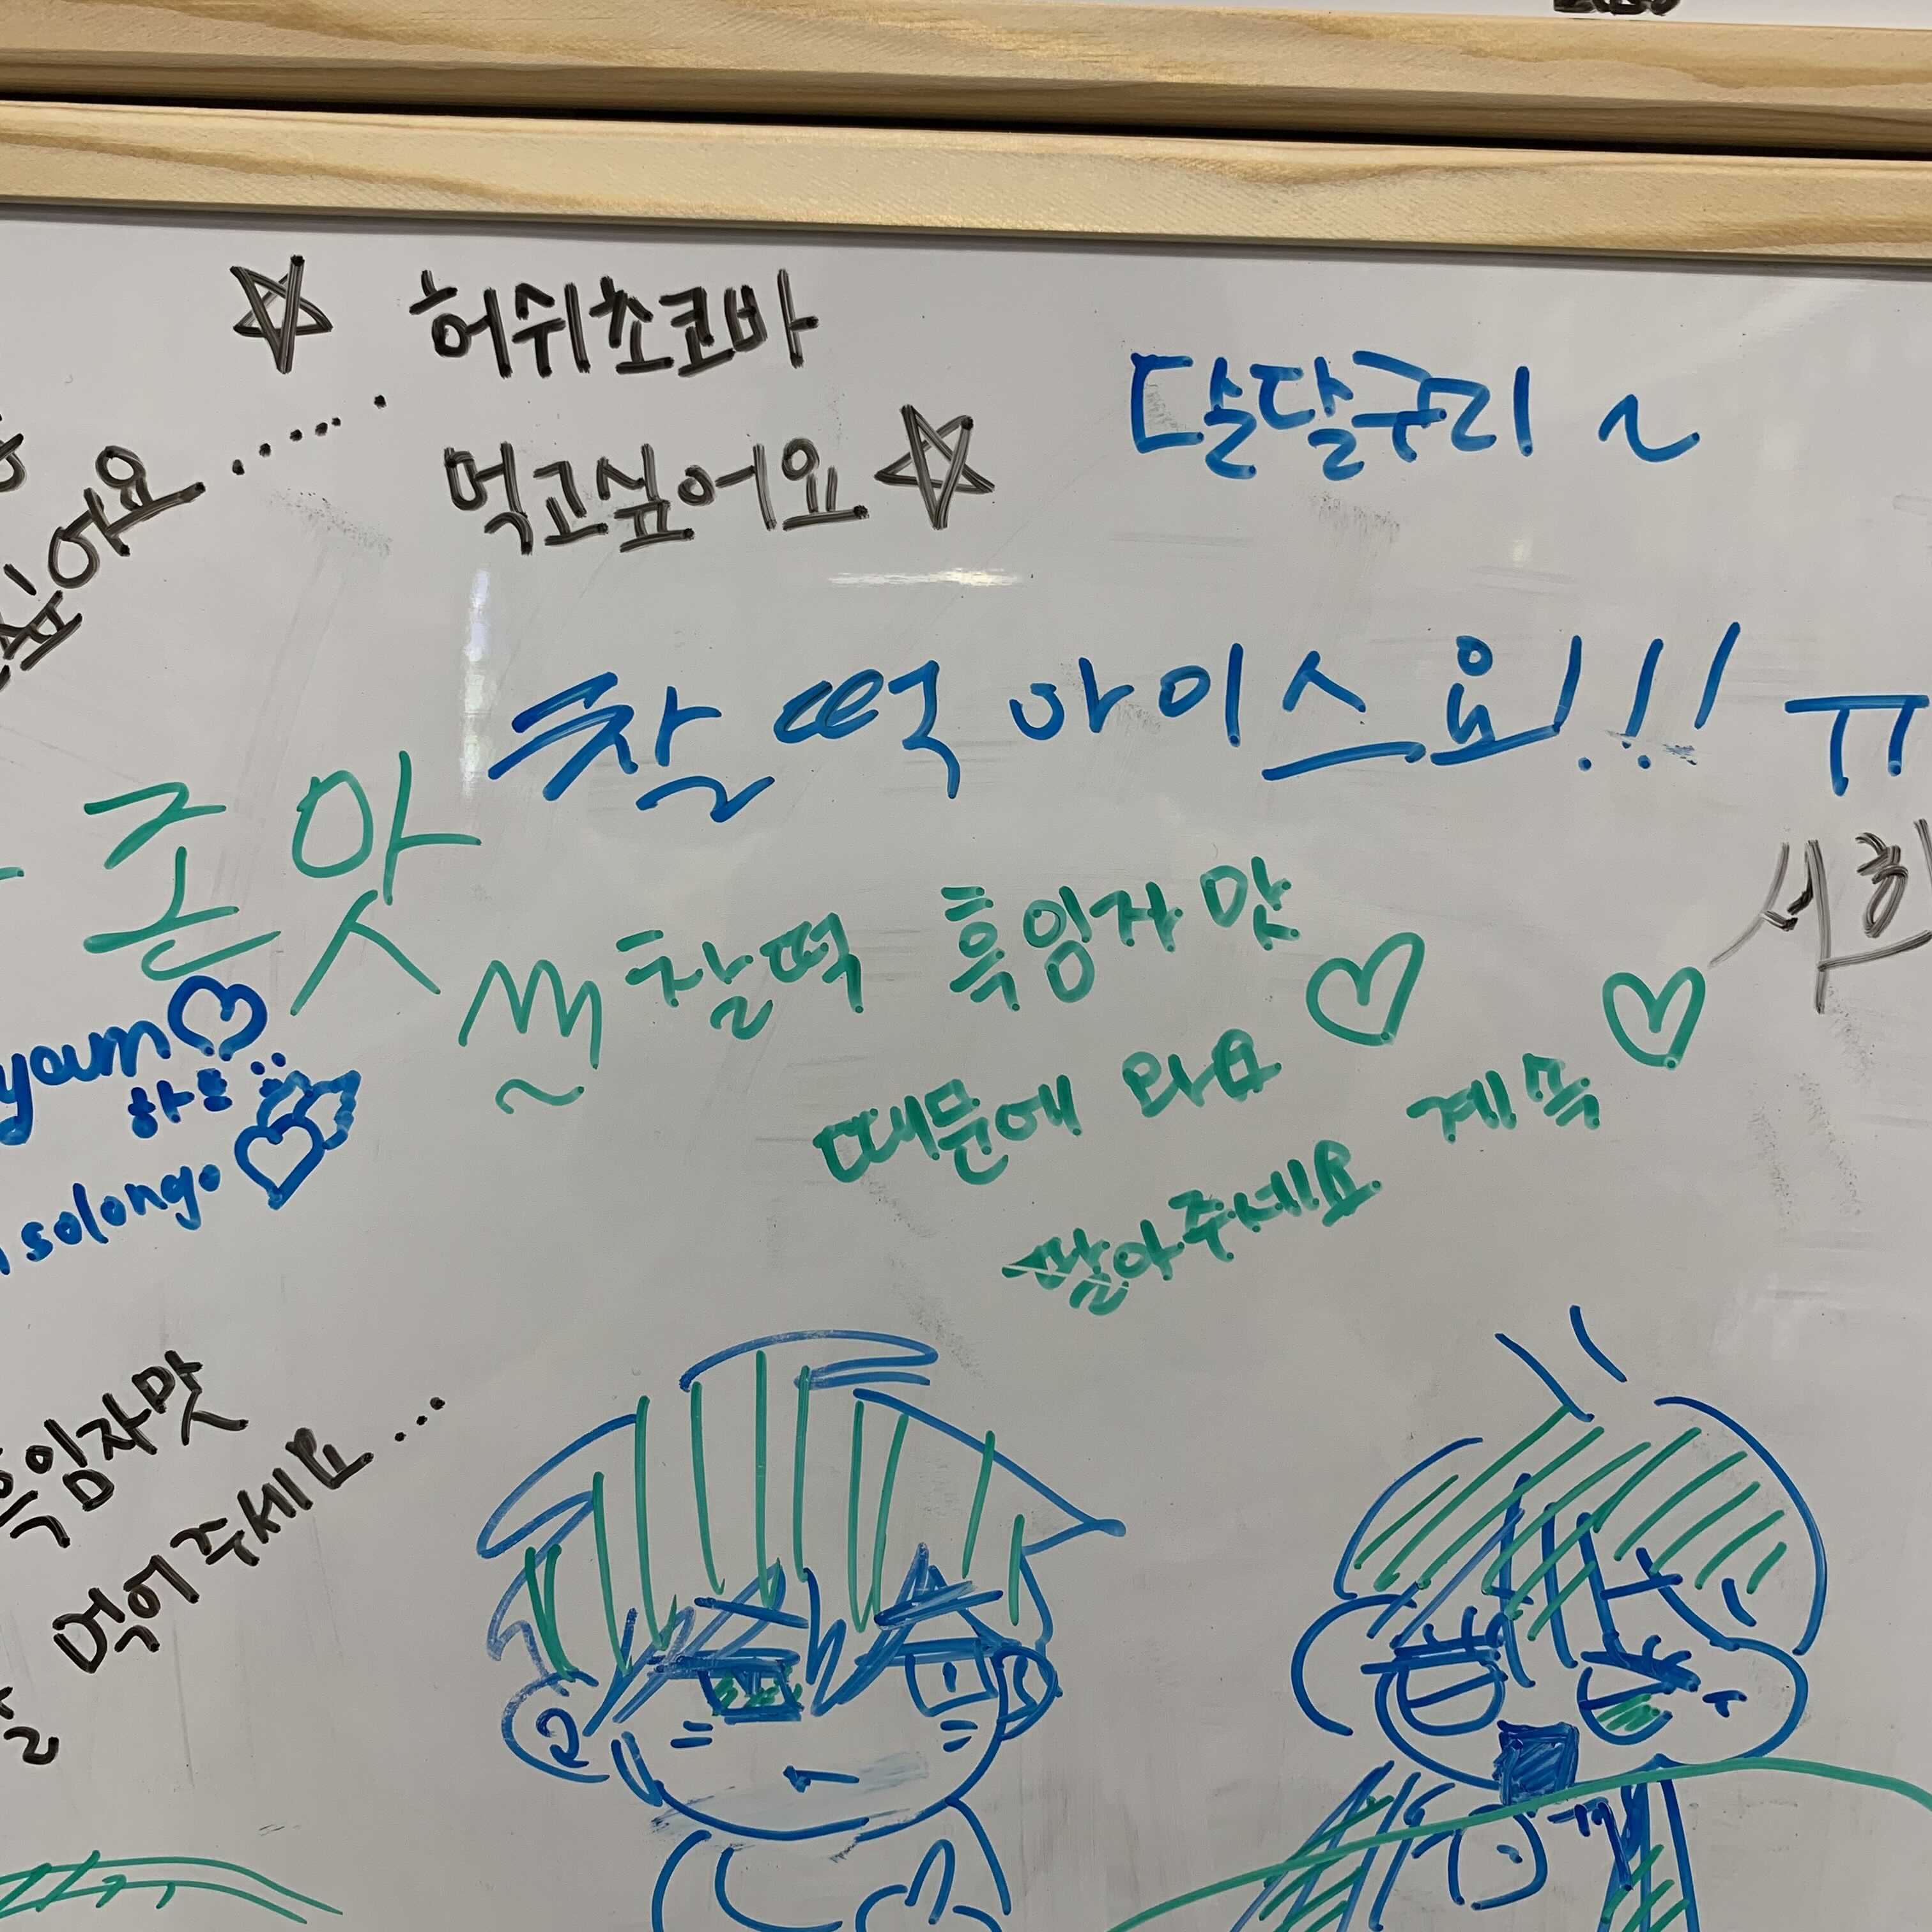 허쉬초코바
먹고싶어요
달달구리 ~
어요 ......
찰떡 아이스요!!! ㅠ
찰떡 흑임자 맛
때문에 와요
계속
팔아주세요
youm
하트
solongo
흑임자맛
먹여주세요...